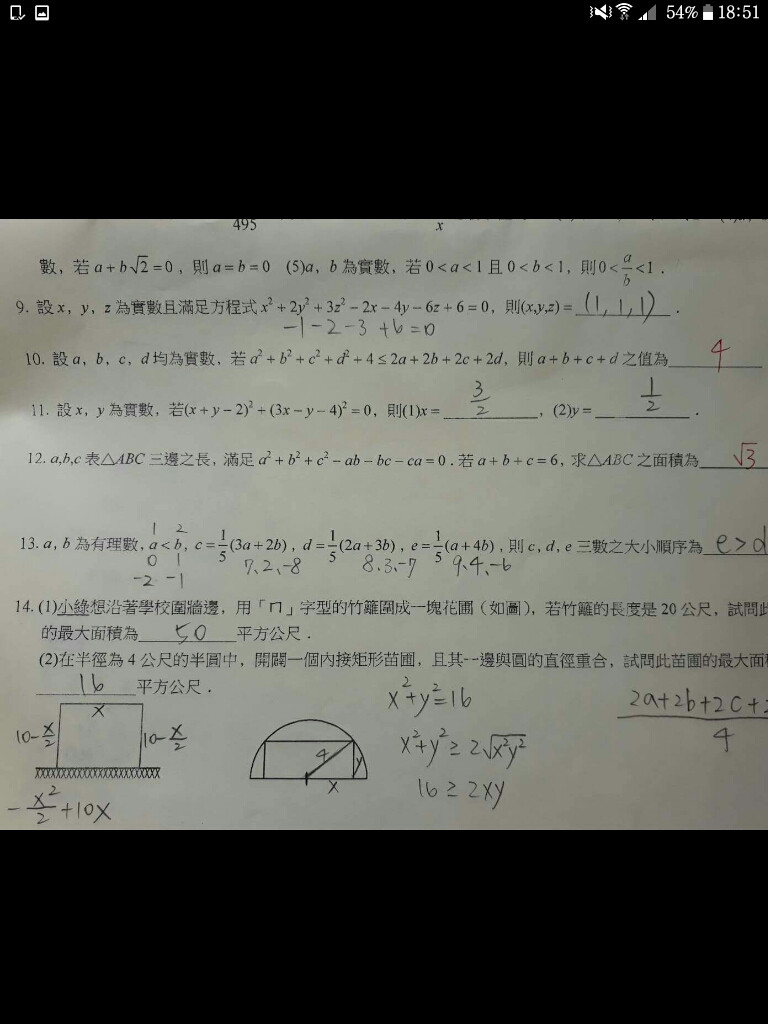 54% 18:51
495 x
數，若 a+b√2=0，則 a=b=0 (5)a，b 為實數，若 0<a<1 且 0<b<1，則0<a/b<1．
9. 設 x，y，z 為實數且滿足方程式 x²+2y²+3z²-2x-4y-6z+6=0，則(x,y,z)= (1,1,1) ．
-1-2-3+6=0
10. 設 a，b，c，d 均為實數，若 a²+b²+c²+d²+4≤2a+2b+2c+2d，則 a+b+c+d 之值為 4
11. 設 x，y 為實數，若(x+y-2)²+(3x-y-4)²=0，則(1)x= 3/2 ，(2)y= 1/2 ．
12. a,b,c 表△ABC 三邊之長，滿足 a²+b²+c²-ab-bc-ca=0．若 a+b+c=6，求△ABC 之面積為 √3
1 2
13. a，b 為有理數，a<b，c=1/5(3a+2b)，d=1/5(2a+3b)，e=1/5(a+4b)，則 c，d，e 三數之大小順序為 e>d
0 1 7、2、-8 8、3、-7 9、4、-6
-2 -1
14. (1)小綠想沿著學校圍牆邊，用「ㄇ」字型的竹籬圍成一塊花圃（如圖），若竹籬的長度是 20 公尺，試問此
的最大面積為 50 平方公尺．
(2)在半徑為 4 公尺的半圓中，開闢一個內接矩形苗圃，且其一邊與圓的直徑重合，試問此苗圃的最大面
16 平方公尺．
x
10-x/2 10-x/2
-x²/2+10x
4 y
x
x²+y²=16
x²+y²≥2√x²y²
16≥2xy
2a+2b+2c+
4